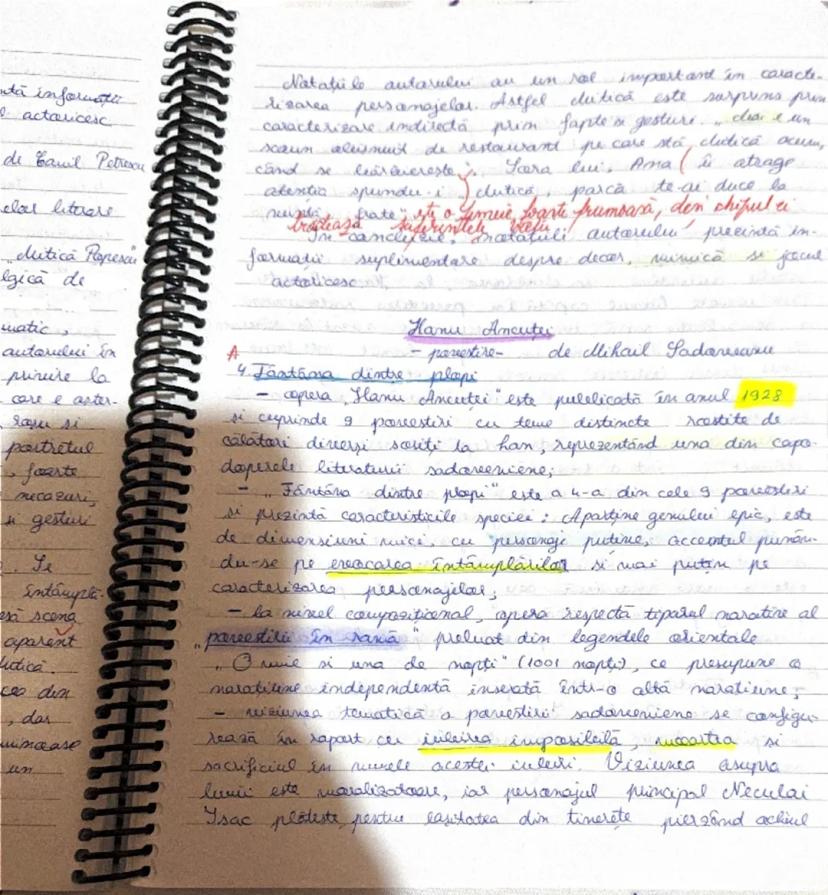 ntă informații
actoricesc
de Camil Petrescu
elor literare
"dutică Popescu"
lgică de
matic,
autorului în
privire la
care e aster-
portretul
, foarte
necazuri,
și gesturi
. Se
întâmplă-
esă scena
aparent
cea din
, dar
un
Notațiile autorului au un rol important în caracte-
rizarea personajelor. Astfel dutică este surprins prin
caracterizare indirectă prin fapte și gesturi. "chiar e un
scaun obișnuit de restaurant pe care stă dutică acum,
când se bărbierește". Sora lui, Ana ( îi atrage
atenția spundu-i ) dutică, parcă te-ai duce la
nuntă, frate" este o femeie foarte frumoasă, deși chipul ei
trădează suferințele vieții
În concluzie, notațiile autorului prezintă in-
formații suplimentare despre decor, mimică și jocul
actoricesc.
Hanu Ancuței
- povestire- de Mihail Sadoveanu
A
4. Fântâna dintre plopi
- opera "Hanu Ancuței" este publicată în anul 1928
și cuprinde 9 povestiri cu teme distincte rostite de
călători diverși sosiți la han, reprezentând una din capo-
doperele literaturii sadoveniene;
- "Fântâna dintre plopi" este a 4-a din cele 9 povestiri
și prezintă caracteristicile speciei: Aparține genului epic, este
de dimensiuni mici, cu personaje puține, accentul punân-
du-se pe evocarea întâmplărilor și mai puțin pe
caracterizarea personajelor;
- la nivel compozițional, opera respectă tiparul narative al
"povestirii în ramă" preluat din legendele orientale
"O mie și una de nopți" (1001 nopți), ce presupune o
narațiune independentă inserată într-o altă narațiune;
- viziunea tematică a povestirii sadoveniene se configu-
rează în raport cu iubirea imposibilă, moartea și
sacrificiul în numele acestei iubiri. Viziunea asupra
lumii este moralizatoare, iar personajul principal Neculai
Isac plătește pentru lașitatea din tinerețe pierzând ochiul